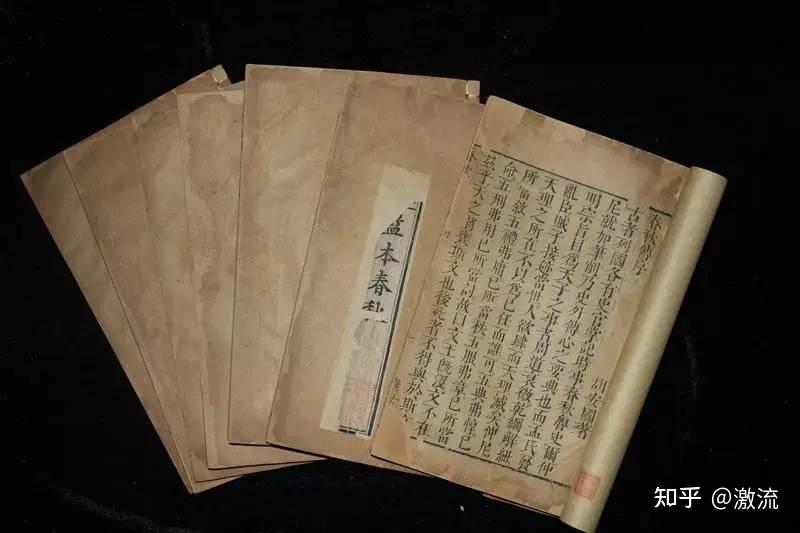 監本春
春秋傳序
胡安國著
古者列國各有史官掌記時事春秋魯史爾仲
尼就加筆削乃史外傳心之要典也而孟氏發
明宗旨目爲天子之事者周道衰微乾綱解紐
亂臣賊子接迹當世人欲肆而天理滅矣仲尼
天理之所在不以爲己任而誰可五典弗惇己
所當敘五禮弗庸己所當秩五服弗章己所當
命五刑弗用己所當討故曰文王既沒文不在
茲乎天之將喪斯文也後死者不得與於斯
知乎 @激流